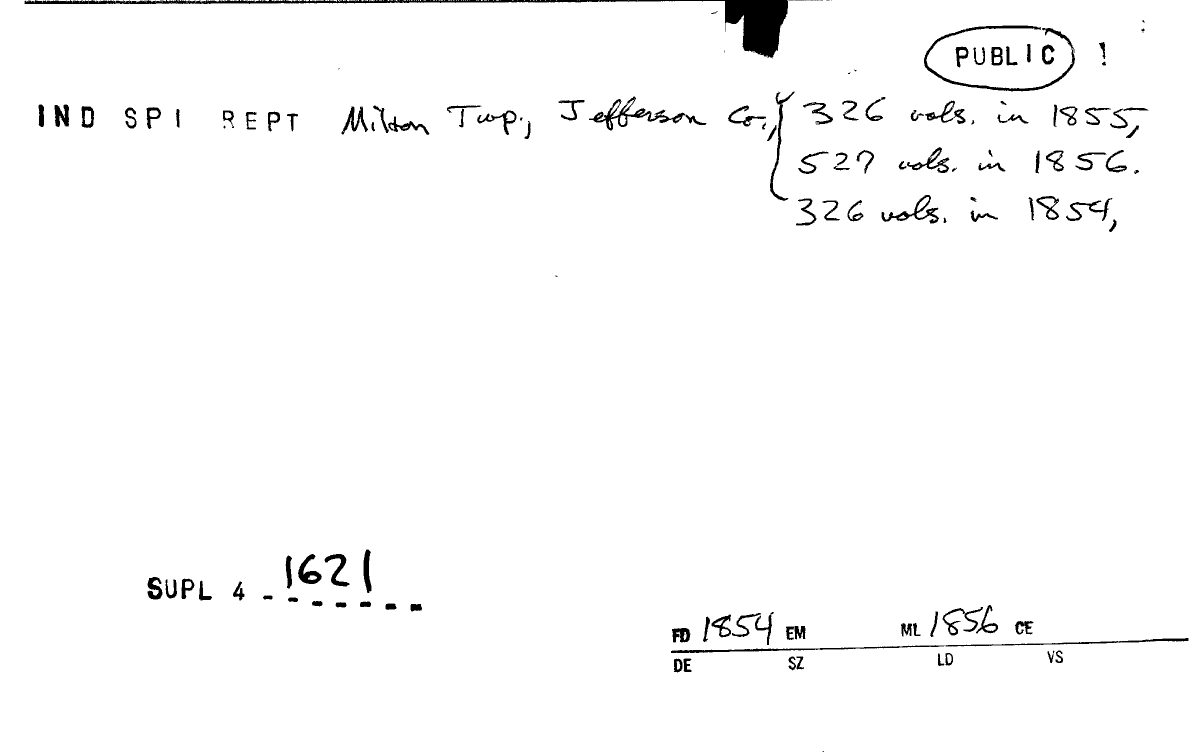 PUBLIC !
IND SPI REPT Milton Twp., Jefferson Co., { 326 vols. in 1855,
527 vols. in 1856.
326 vols. in 1854,
SUPL 4 - 1621
FD 1854 EM ML 1856 CE
DE SZ LD VS